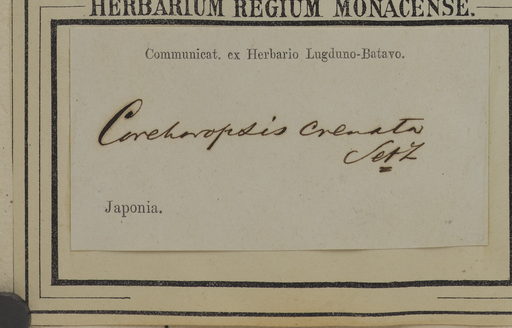 HERBARIUM REGIUM MONACENSE.
Communicat. ex Herbario Lugduno-Batavo.
Corchoropsis crenata
S et Z
Japonia.